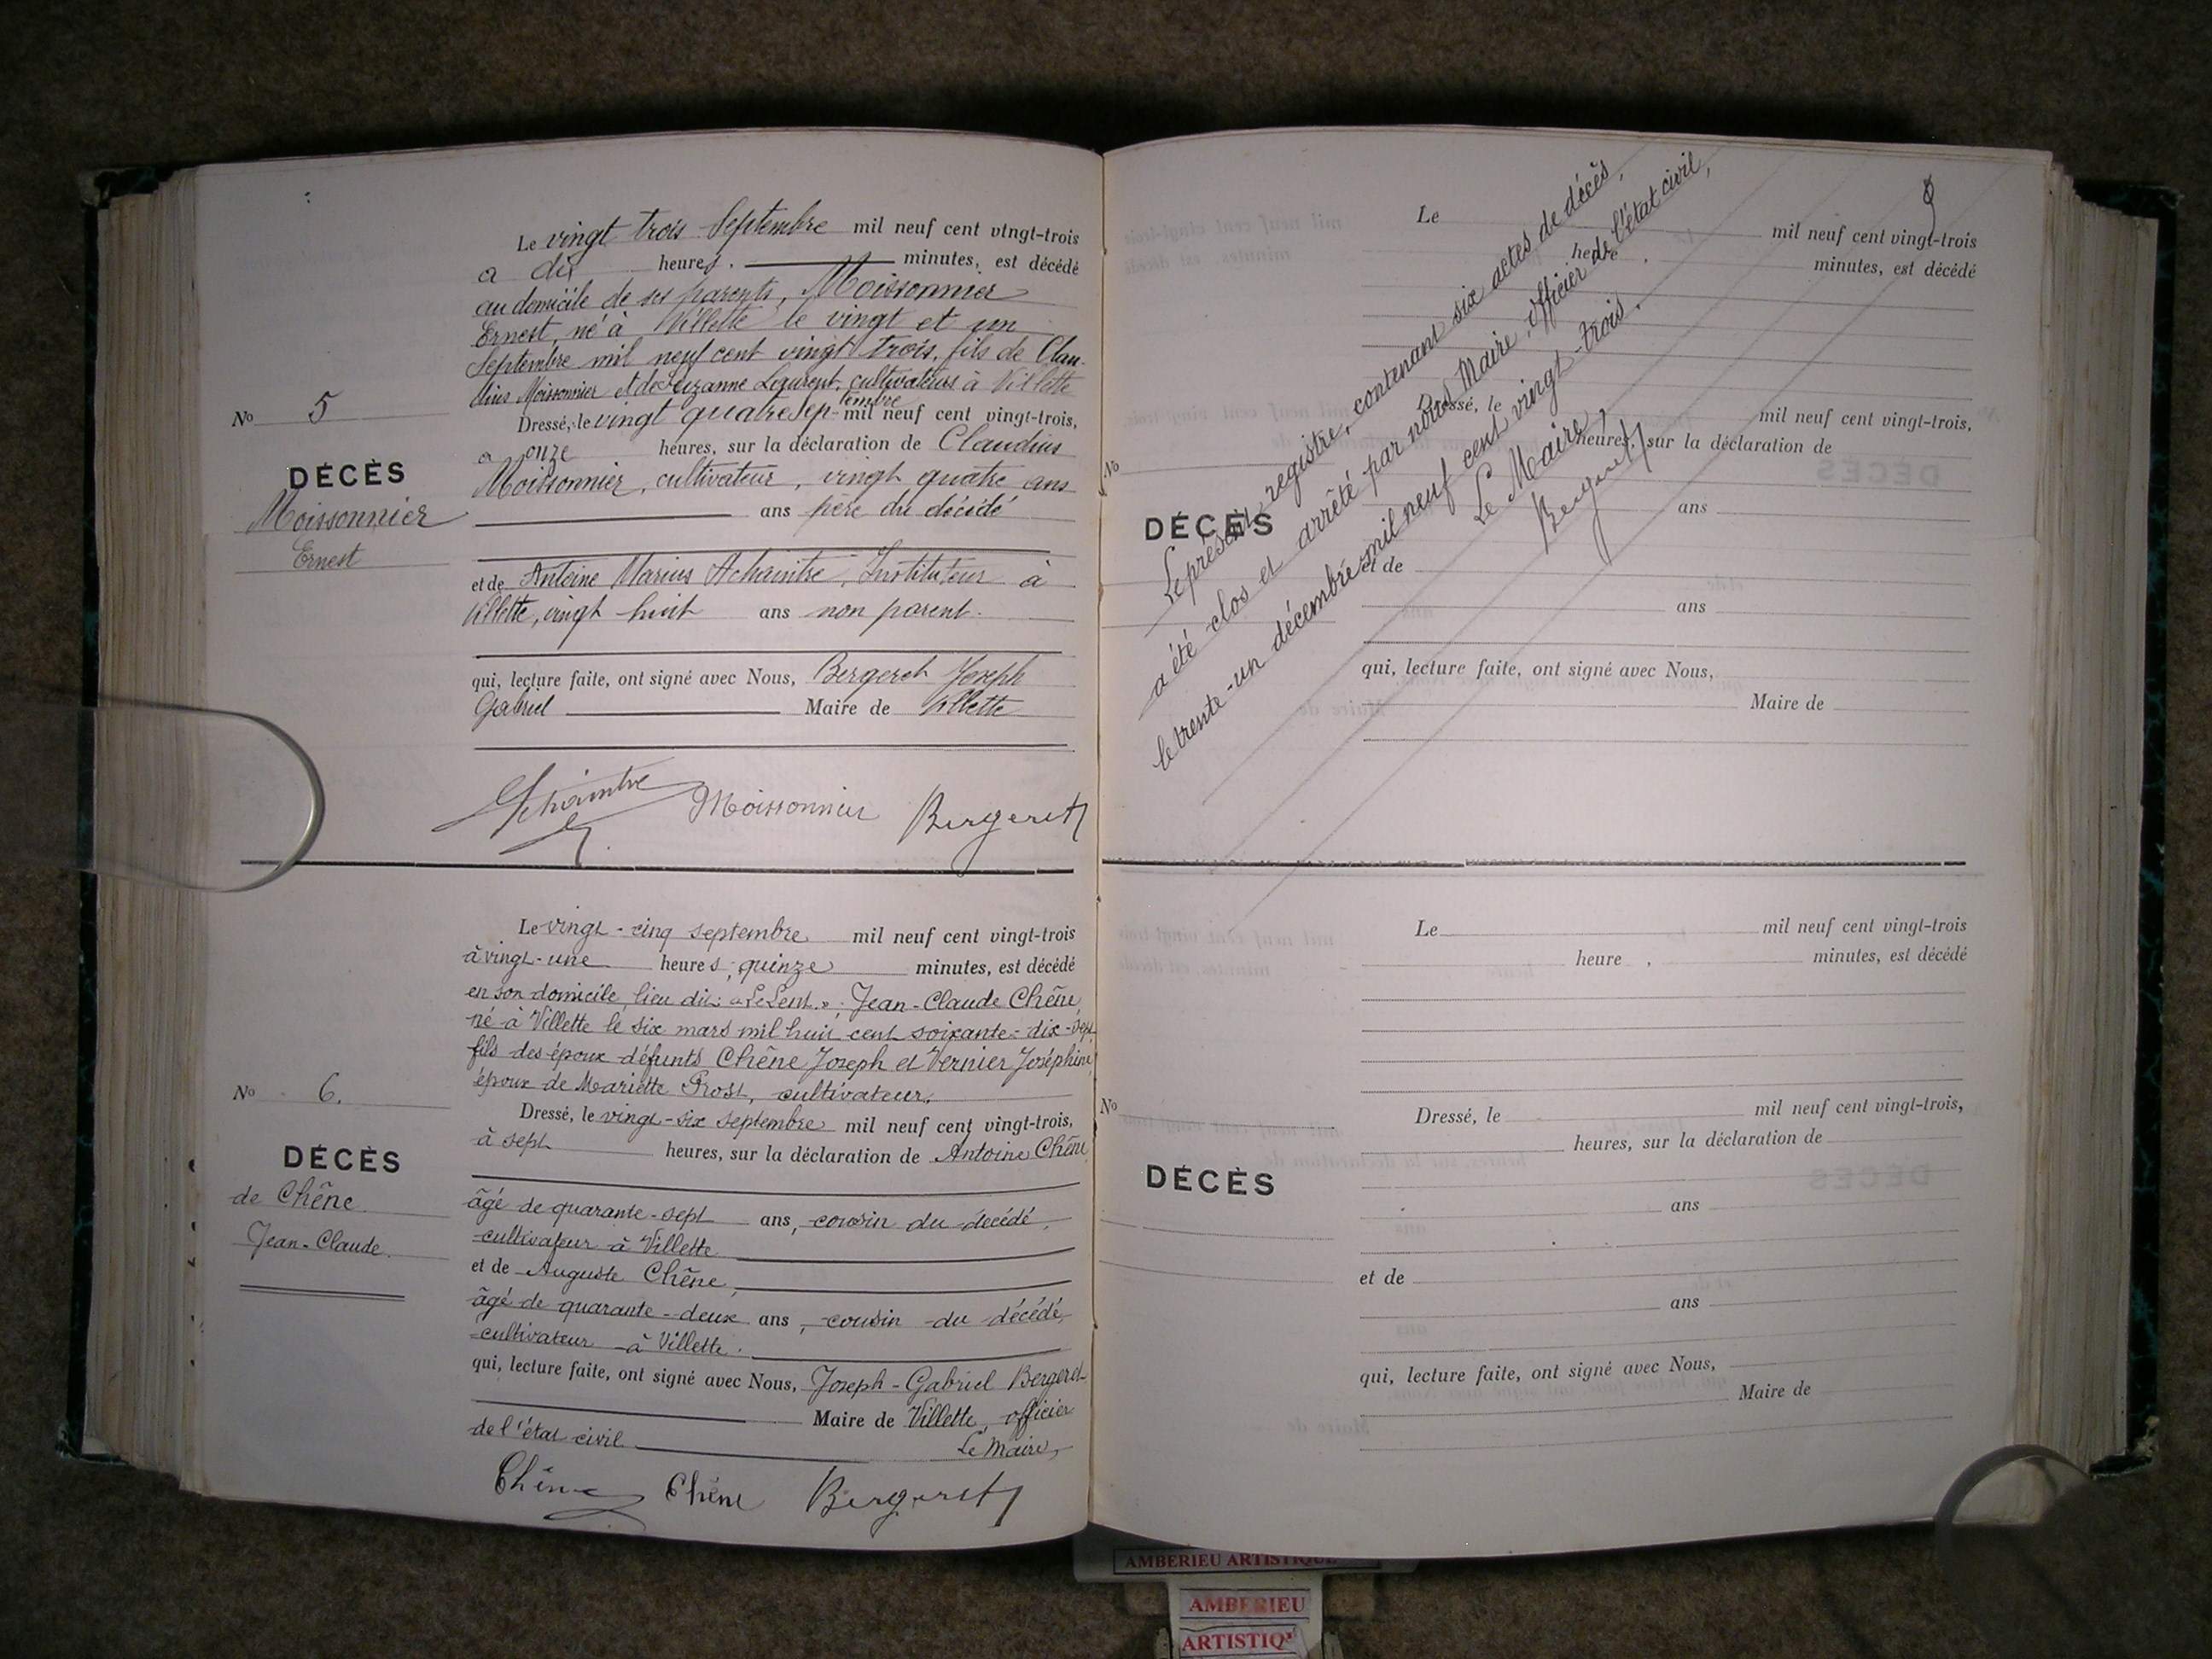 Le vingt trois Septembre mil neuf cent vingt-trois
a dix heures. minutes, est décédé
au domicile de ses parents, Moissonnier
Ernest, né à Villette le vingt et un
Septembre mil neuf cent vingt trois, fils de Clau-
dius Moissonnier et de Suzanne Laurent, cultivateurs à Villette
No 5
Dressé, le vingt quatre Septembre mil neuf cent vingt-trois,
a onze heures, sur la déclaration de Claudius
DÉCÈS
Moissonnier, cultivateur, vingt quatre ans
Moissonnier
ans père du décédé
Ernest
et de Antoine Marius Achaintre, Instituteur à
Villette, vingt huit ans non parent.
qui, lecture faite, ont signé avec Nous, Bergeret Joseph
Gabriel Maire de Villette
Achaintre Moissonnier Bergeret
Le vingt-cinq septembre mil neuf cent vingt-trois
à vingt-une heures, quinze minutes, est décédé
en son domicile, lieu dit: Jean-Claude Chêne,
né à Villette le six mars mil huit cent soixante-dix-sept
fils des époux défunts Chêne Joseph et Vernier Joséphine
époux de Mariette Prost, cultivateur.
No 6.
Dressé, le vingt-six septembre mil neuf cent vingt-trois,
à sept heures, sur la déclaration de Antoine Chêne
DÉCÈS
de Chêne
Jean-Claude.
âgé de quarante-sept ans, cousin du décédé,
cultivateur à Villette
et de Auguste Chêne,
âgé de quarante-deux ans, cousin du décédé,
cultivateur à Villette.
qui, lecture faite, ont signé avec Nous, Joseph-Gabriel Bergeret
Maire de Villette, officier
de l'état civil
Le Maire,
Chêne Chêne Bergeret
Le mil neuf cent vingt-trois
heure , minutes, est décédé
Le présent registre, contenant six actes de décès,
a été clos et arrêté par nous Maire, officier de l'état civil,
le trente-un décembre mil neuf cent vingt-trois.
Le Maire,
Bergeret
No
Dressé, le mil neuf cent vingt-trois,
heures, sur la déclaration de
DÉCÈS
ans
et de
ans
qui, lecture faite, ont signé avec Nous,
Maire de
Le mil neuf cent vingt-trois
heure , minutes, est décédé
No
Dressé, le mil neuf cent vingt-trois,
heures, sur la déclaration de
DÉCÈS
ans
et de
ans
qui, lecture faite, ont signé avec Nous,
Maire de
AMBERIEU ARTISTIQUE
AMBERIEU
ARTISTIQ